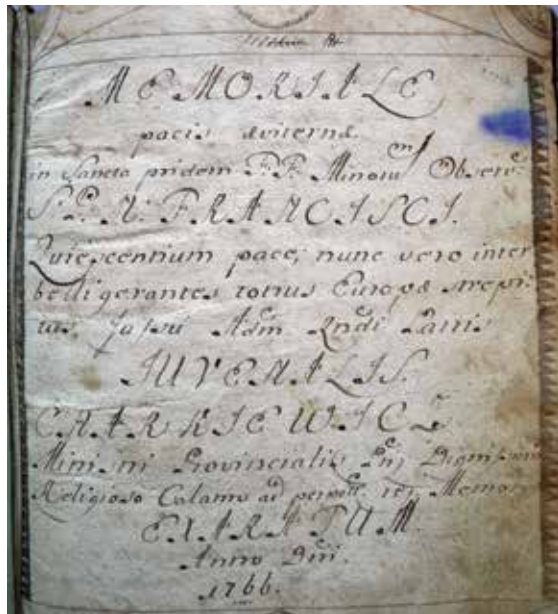 MEMORIALE
pacis æviternæ
in Sancta pridem F.F. Minorum Observ:
S. P. N. FRANCISCI.
Quiescentium pace, nunc vero inter
belligerantes totius Europæ strepi:
tus, Jussu Adm Rndi Patris
JUVENALIS
CHARKIEWICZ
Ministri Provincialis Dignissimi
Religioso Calamo ad perpet: rei Memor
EXARATUM.
Anno Dni.
1766.